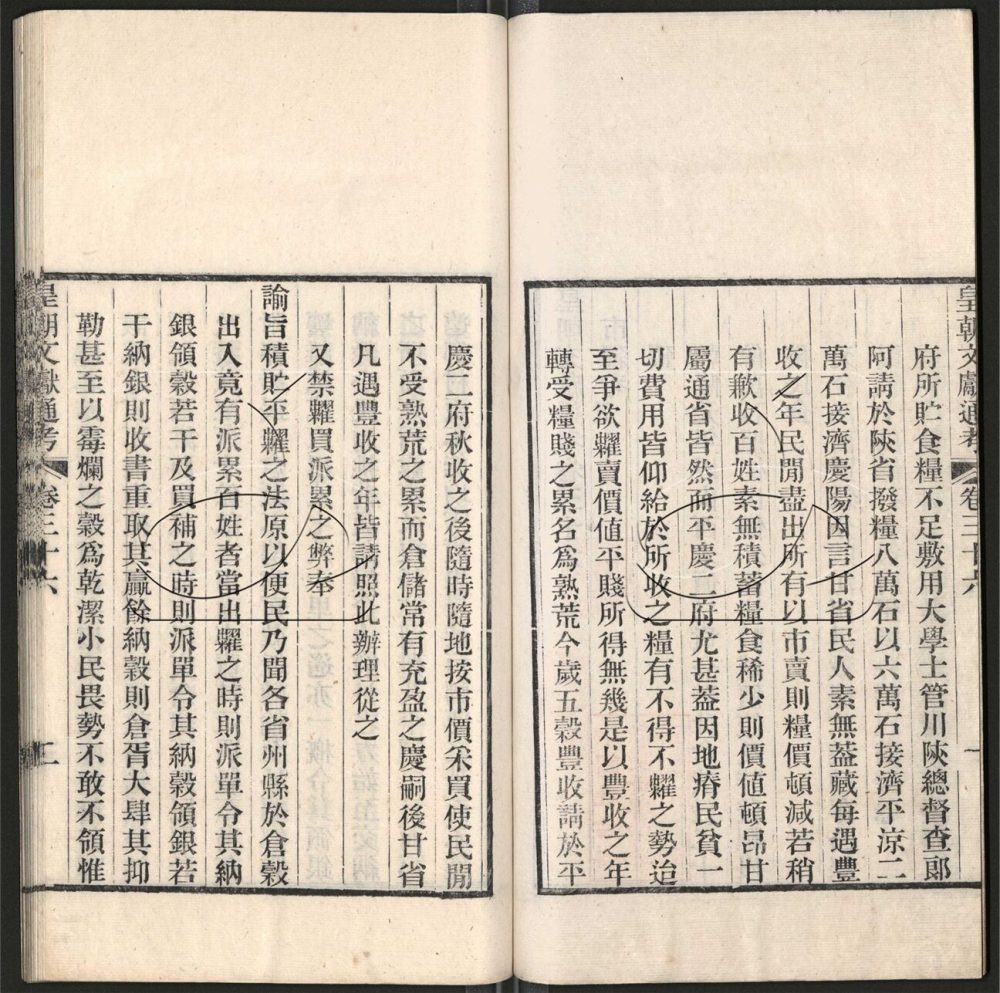 皇朝文獻通考 卷三十六 一
府所貯食糧不足敷用大學士管川陜總督查郞
阿請於陜省撥糧八萬石以六萬石接濟平涼二
萬石接濟慶陽因言甘省民人素無葢藏每遇豐
收之年民閒盡出所有以市賣則糧價頓減若稍
有歉收百姓素無積蓄糧食稀少則價值頓昂甘
屬通省皆然而平慶二府尤甚葢因地瘠民貧一
切費用皆仰給於所收之糧有不得不糶之勢迨
至爭欲糶賣價值平賤所得無幾是以豐收之年
轉受糧賤之累名爲熟荒今歲五穀豐收請於平
慶二府秋收之後隨時隨地按市價采買使民閒
不受熟荒之累而倉儲常有充盈之慶嗣後甘省
凡遇豐收之年皆請照此辦理從之
又禁糶買派累之弊奉
諭旨積貯平糶之法原以便民乃聞各省州縣於倉穀
出入竟有派累百姓者當出糶之時則派單令其納
銀領穀若干及買補之時則派單令其納穀領銀若
干納銀則收書重取其贏餘納穀則倉胥大肆其抑
勒甚至以霉爛之穀爲乾潔小民畏勢不敢不領惟
皇朝文獻通考 卷三十六